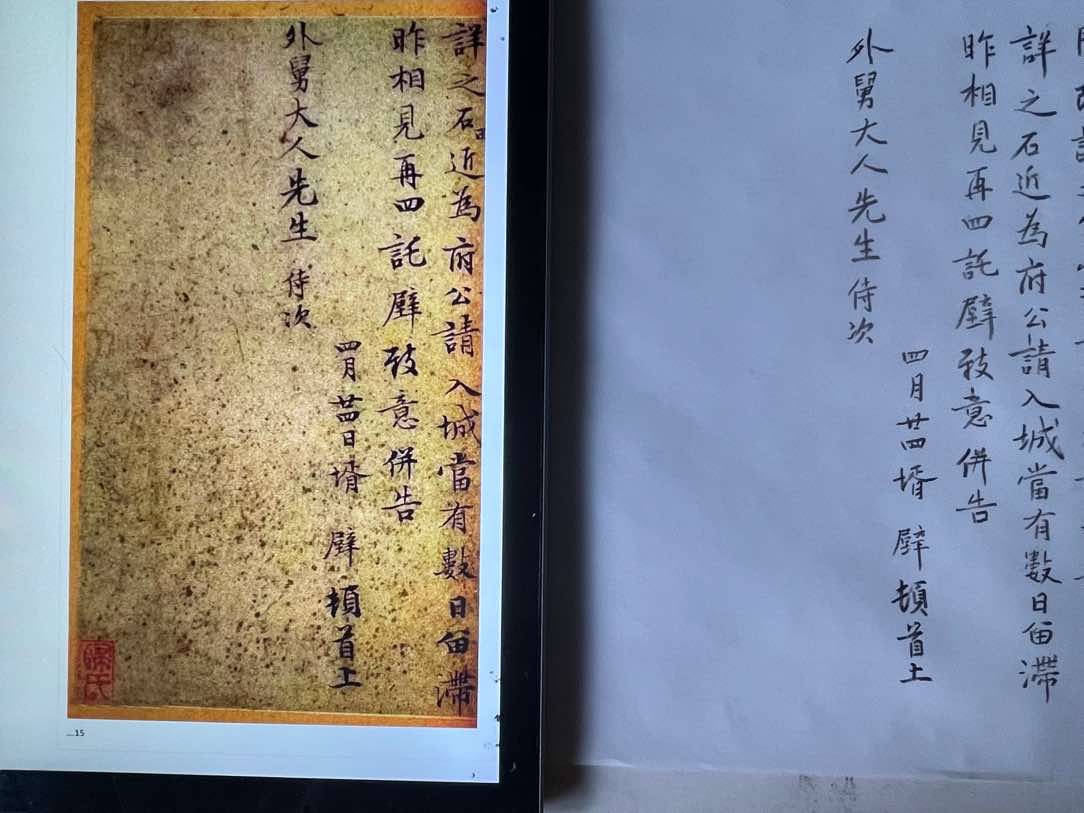 詳之石近為府公請入城當有數日留滯
昨相見再四託壁致意併告
外舅大人先生 侍次
四月廿四日壻 壁 頓首上
15
詳之石近為府公請入城當有數日留滯
昨相見再四託壁致意併告
外舅大人先生侍次
四月廿四壻 壁頓首上